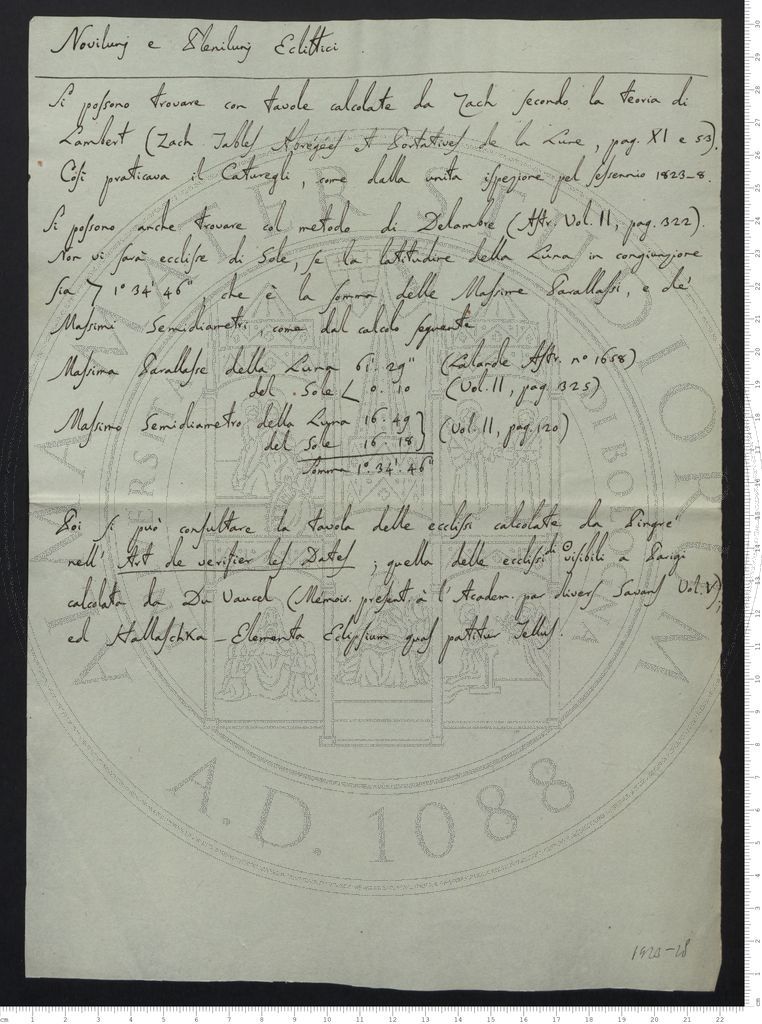 Novilunj e Plenilunj Eclittici
Si possono trovare con tavole calcolate da Zach secondo la teoria di
Lambert (Zach Tables Abrégées et Portatives de la Lune, pag. XI e 53).
Così praticava il Caturegli, come dalla unita ispezione pel sessennio 1823-8.
Si possono anche trovare col metodo di Delambre (Astr. Vol. II, pag. 322).
Non vi sarà ecclisse di Sole, se la latitudine della Luna in congiunzione
sia > 1° 34' 46", che è la somma delle Massime Parallassi, e de'
Massimi Semidiametri, come dal calcolo seguente
Massima Parallasse della Luna 61'. 29" (Lalande Astr. n° 1658)
del Sole < 0. 10 (Vol. II, pag. 325)
Massimo Semidiametro della Luna 16. 49 } (Vol. II, pag. 120)
del Sole 16. 18
Somma 1°. 34'. 46"
Poi si può consultare la tavola delle ecclissi calcolate da Pingré
nell' Art de verifier les Dates ; quella delle ecclissi di ☉ visibili a Parigi
calcolata da Du Vaucel (Mémoir. présent. à l'Academ. par divers Savans Vol. V);
ed Hallaschka - Elementa Eclipsium quas patitur Tellus.
1823-28
ALMA MATER STUDIORUM
UNIVERSITAS DI BOLOGNA
A.D. 1088